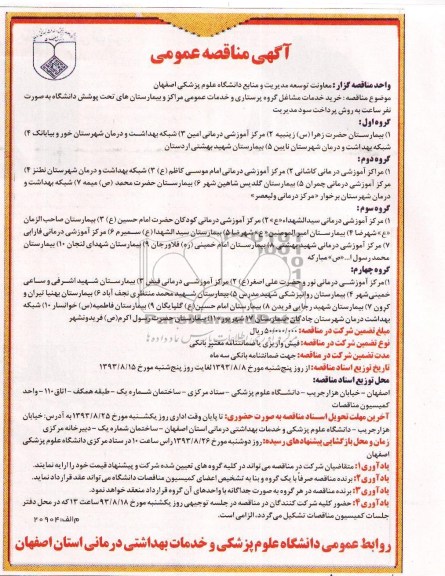 آگهی مناقصه عمومی
واحد مناقصه گزار: معاونت توسعه مدیریت و منابع دانشگاه علوم پزشکی اصفهان
موضوع مناقصه: خرید خدمات مشاغل گروه پرستاری و خدمات عمومی مراکز و بیمارستان های تحت پوشش دانشگاه به صورت
نفر ساعت به روش پرداخت سود مدیریت
گروه اول:
۱) بیمارستان حضرت زهرا (س) زینبیه ۲) مرکز آموزشی درمانی امین ۳) شبکه بهداشت و درمان شهرستان خور و بیابانک ۴)
شبکه بهداشت و درمان شهرستان نایین ۵) بیمارستان شهید بهشتی اردستان
گروه دوم:
۱) مرکز آموزشی درمانی کاشانی ۲) مرکز آموزشی درمانی امام موسی کاظم (ع) ۳) شبکه بهداشت و درمان شهرستان نطنز ۴)
مرکز آموزشی درمانی چمران ۵) بیمارستان گلدیس شاهین شهر ۶) بیمارستان حضرت محمد (ص) میمه ۷) شبکه بهداشت و
درمان شهرستان برخوار «مرکز درمانی ولیعصر»
گروه سوم:
۱) مرکز آموزشی درمانی سیدالشهداء «ع» ۲) مرکز آموزشی درمانی کودکان حضرت امام حسین (ع) ۳) بیمارستان صاحب الزمان
«ع» شهرضا ۴) بیمارستان امیرالمومنین «ع» شهرضا ۵) بیمارستان سیدالشهدا (ع) سمیرم ۶) مرکز آموزشی درمانی فارابی
۷) مرکز آموزشی درمانی شهید بهشتی ۸) بیمارستان امام خمینی (ره) فلاورجان ۹) بیمارستان شهدای لنجان ۱۰) بیمارستان
محمد رسول ا... «ص» مبارکه
گروه چهارم:
۱) مرکز آموزشی درمانی نور و حضرت علی اصغر (ع) ۲) مرکز آموزشی درمانی فیض ۳) بیمارستان شهید اشرفی و ساعی
خمینی شهر ۴) بیمارستان روانپزشکی شهید مدرس ۵) بیمارستان شهید محمد منتظری نجف آباد ۶) بیمارستان بهنیا تیران و
کرون ۷) بیمارستان شهید رجایی فریدن ۸) بیمارستان امام حسین (ع) گلپایگان ۹) بیمارستان فاطمیه (س) خوانسار ۱۰) شبکه
بهداشت درمان شهرستان چادگان «بیمارستان ۱۷ شهریور» ۱۱) بیمارستان حضرت رسول اکرم (ص) فریدونشهر
مبلغ تضمین شرکت در مناقصه: ۵۰/۰۰۰/۰۰۰ ریال
نوع تضمین شرکت در مناقصه: فیش واریزی یا ضمانتنامه معتبر بانکی
مدت تضمین شرکت در مناقصه: جهت ضمانتنامه بانکی سه ماه
تاریخ توزیع اسناد مناقصه: از روز پنجشنبه مورخ ۱۳۹۳/۸/۸ لغایت روز پنجشنبه مورخ ۱۳۹۳/۸/۱۵
محل توزیع اسناد مناقصه:
اصفهان - خیابان هزارجریب - دانشگاه علوم پزشکی - ستاد مرکزی - ساختمان شماره یک - طبقه همکف - اتاق ۱۱۰ - واحد
کمیسیون مناقصات
آخرین مهلت تحویل اسناد مناقصه به صورت حضوری: تا پایان وقت اداری روز یکشنبه مورخ ۱۳۹۳/۸/۲۵ به آدرس: خیابان
هزارجریب - دانشگاه علوم پزشکی و خدمات بهداشتی درمانی استان اصفهان - ساختمان شماره یک - دبیرخانه مرکزی
زمان و محل بازگشایی پیشنهادهای رسیده: روز دوشنبه مورخ ۱۳۹۳/۸/۲۶ راس ساعت ۱۰ در ستاد مرکزی دانشگاه علوم پزشکی
اصفهان
یادآوری۱: متقاضیان شرکت در مناقصه می تواند در کلیه گروه های تعیین شده شرکت و پیشنهاد قیمت خود را ارایه نمایند.
یادآوری۲: برنده مناقصه صرفاً با یک گروه و بنا به تشخیص اعضای کمیسیون مناقصات دانشگاه می تواند عقد قرارداد نماید.
یادآوری۳: برنده مناقصه در هر گروه به صورت جداگانه با واحدهای آن گروه قرارداد منعقد خواهد نمود.
یادآوری۴: حضور کلیه شرکت کنندگان در مناقصه در جلسه توجیهی روز یکشنبه مورخ ۹۳/۸/۱۸ ساعت ۱۳ که در محل دفتر
جلسات کمیسیون مناقصات تشکیل می گردد، الزامی است.
م الف: ۲۰۹۰۴
روابط عمومی دانشگاه علوم پزشکی و خدمات بهداشتی درمانی استان اصفهان